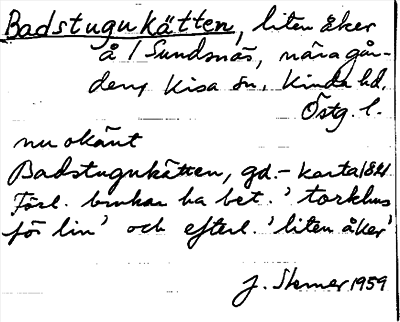 Badstugukätten, liten åker
å 1 Sundsnäs, nära går-
den, Kisa sn. Kinda hd.
Östg. l.
nu okänt
Badstugukätten, gd.-karta
Förl. brukar ha bet. 'torkhus
för lin' och efterl. 'liten åker'
J. 1959